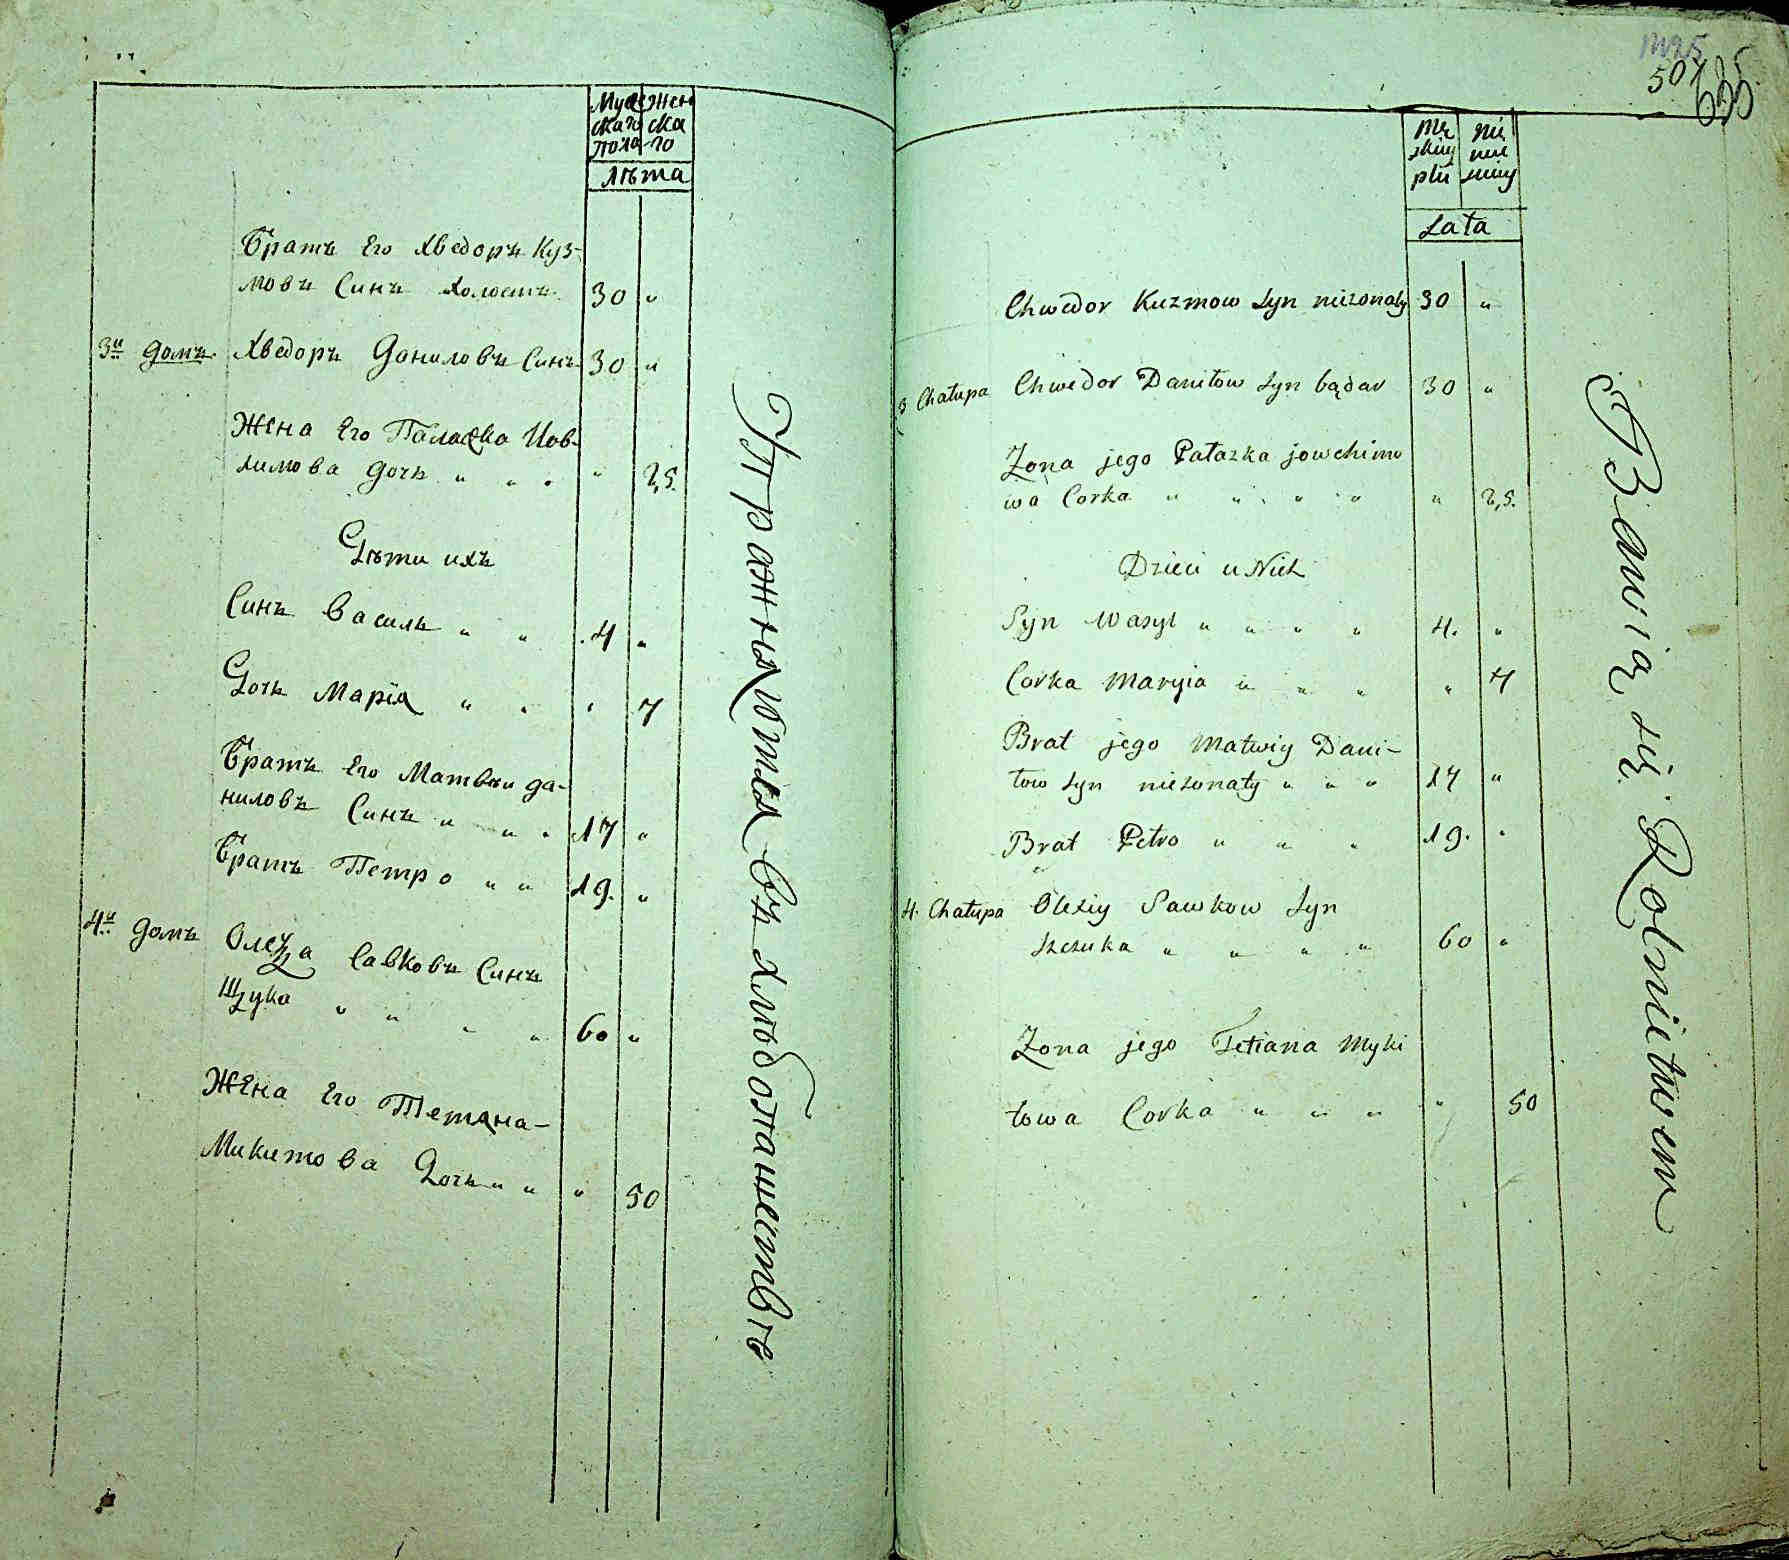 Муж Жен
скаго ска
пола го
лѣта
Братъ Его Хведоръ Куз-
мовъ Синъ холостъ 30 "
3й домъ Хведоръ Даниловъ Синъ 30 "
Жена Его Палажка Иов-
химова дочь " " " " 25.
Дѣти ихъ
Синъ Василь " " 4 "
Дочь Марія " " " 7
Братъ Его Матвѣи да-
ниловъ Синъ " " " 17 "
Братъ Петро " " 19. "
4й домъ Олеѯа Савковъ Синъ
Щука " " " " 60 "
Жена Его Тетяна-
Микитова Дочь " " " 50
Упражняются въ хлѣбопашествѣ
507
Mę nie
skiey wie
płci sciey
Lata
Chwedor Kuzmow Syn nieżonaty 30 "
3 Chałupa Chwedor Daniłow Syn bądar 30 "
Żona jego Pałażka jowchimo
wa Corka " " " " " 25.
Dzieci u Nich
Syn Wasyl " " " " 4. "
Corka Maryia " " " " 7
Brat jego Matwiy Dani-
łow Syn nieżonaty " " " 17 "
Brat Petro " " " 19. "
4. Chałupa Olexiy Sawkow Syn
Szczuka " " " " 60 "
Żona jego Tetiana Myki
towa Corka " " " " 50
Bawią się Rolnictwem